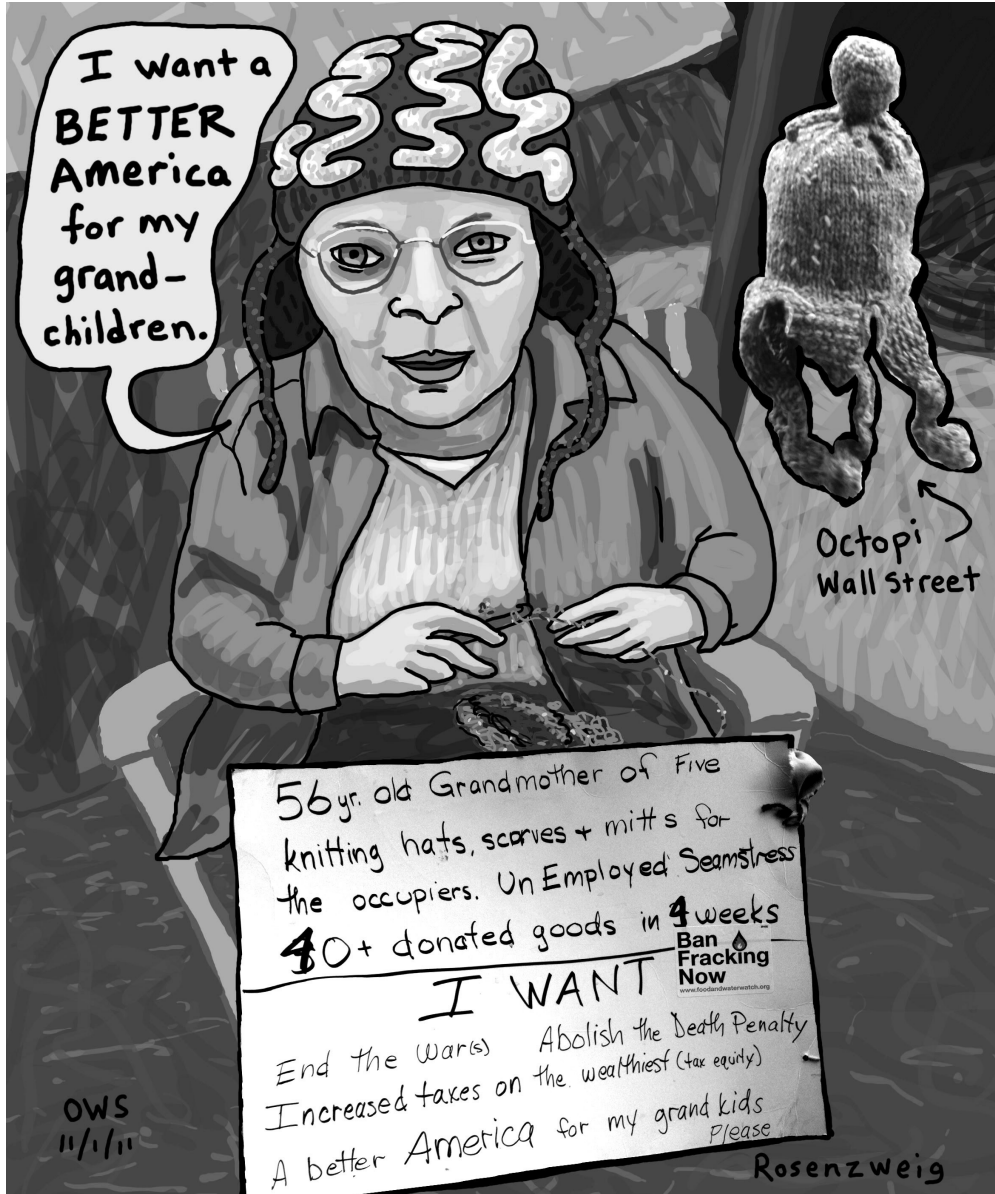 I want a
BETTER
America
for my
grand-
children.
Octopi
Wall Street
56 yr. old Grandmother of Five
knitting hats, scarves + mitts for
the occupiers. UnEmployed Seamstress
40+ donated goods in 4 weeks
Ban
Fracking
Now
www.foodandwaterwatch.org
I WANT
End the War(s) Abolish the Death Penalty
Increased taxes on the wealthiest (tax equity)
A better America for my grand kids
Please
OWS
11/1/11
Rosenzweig